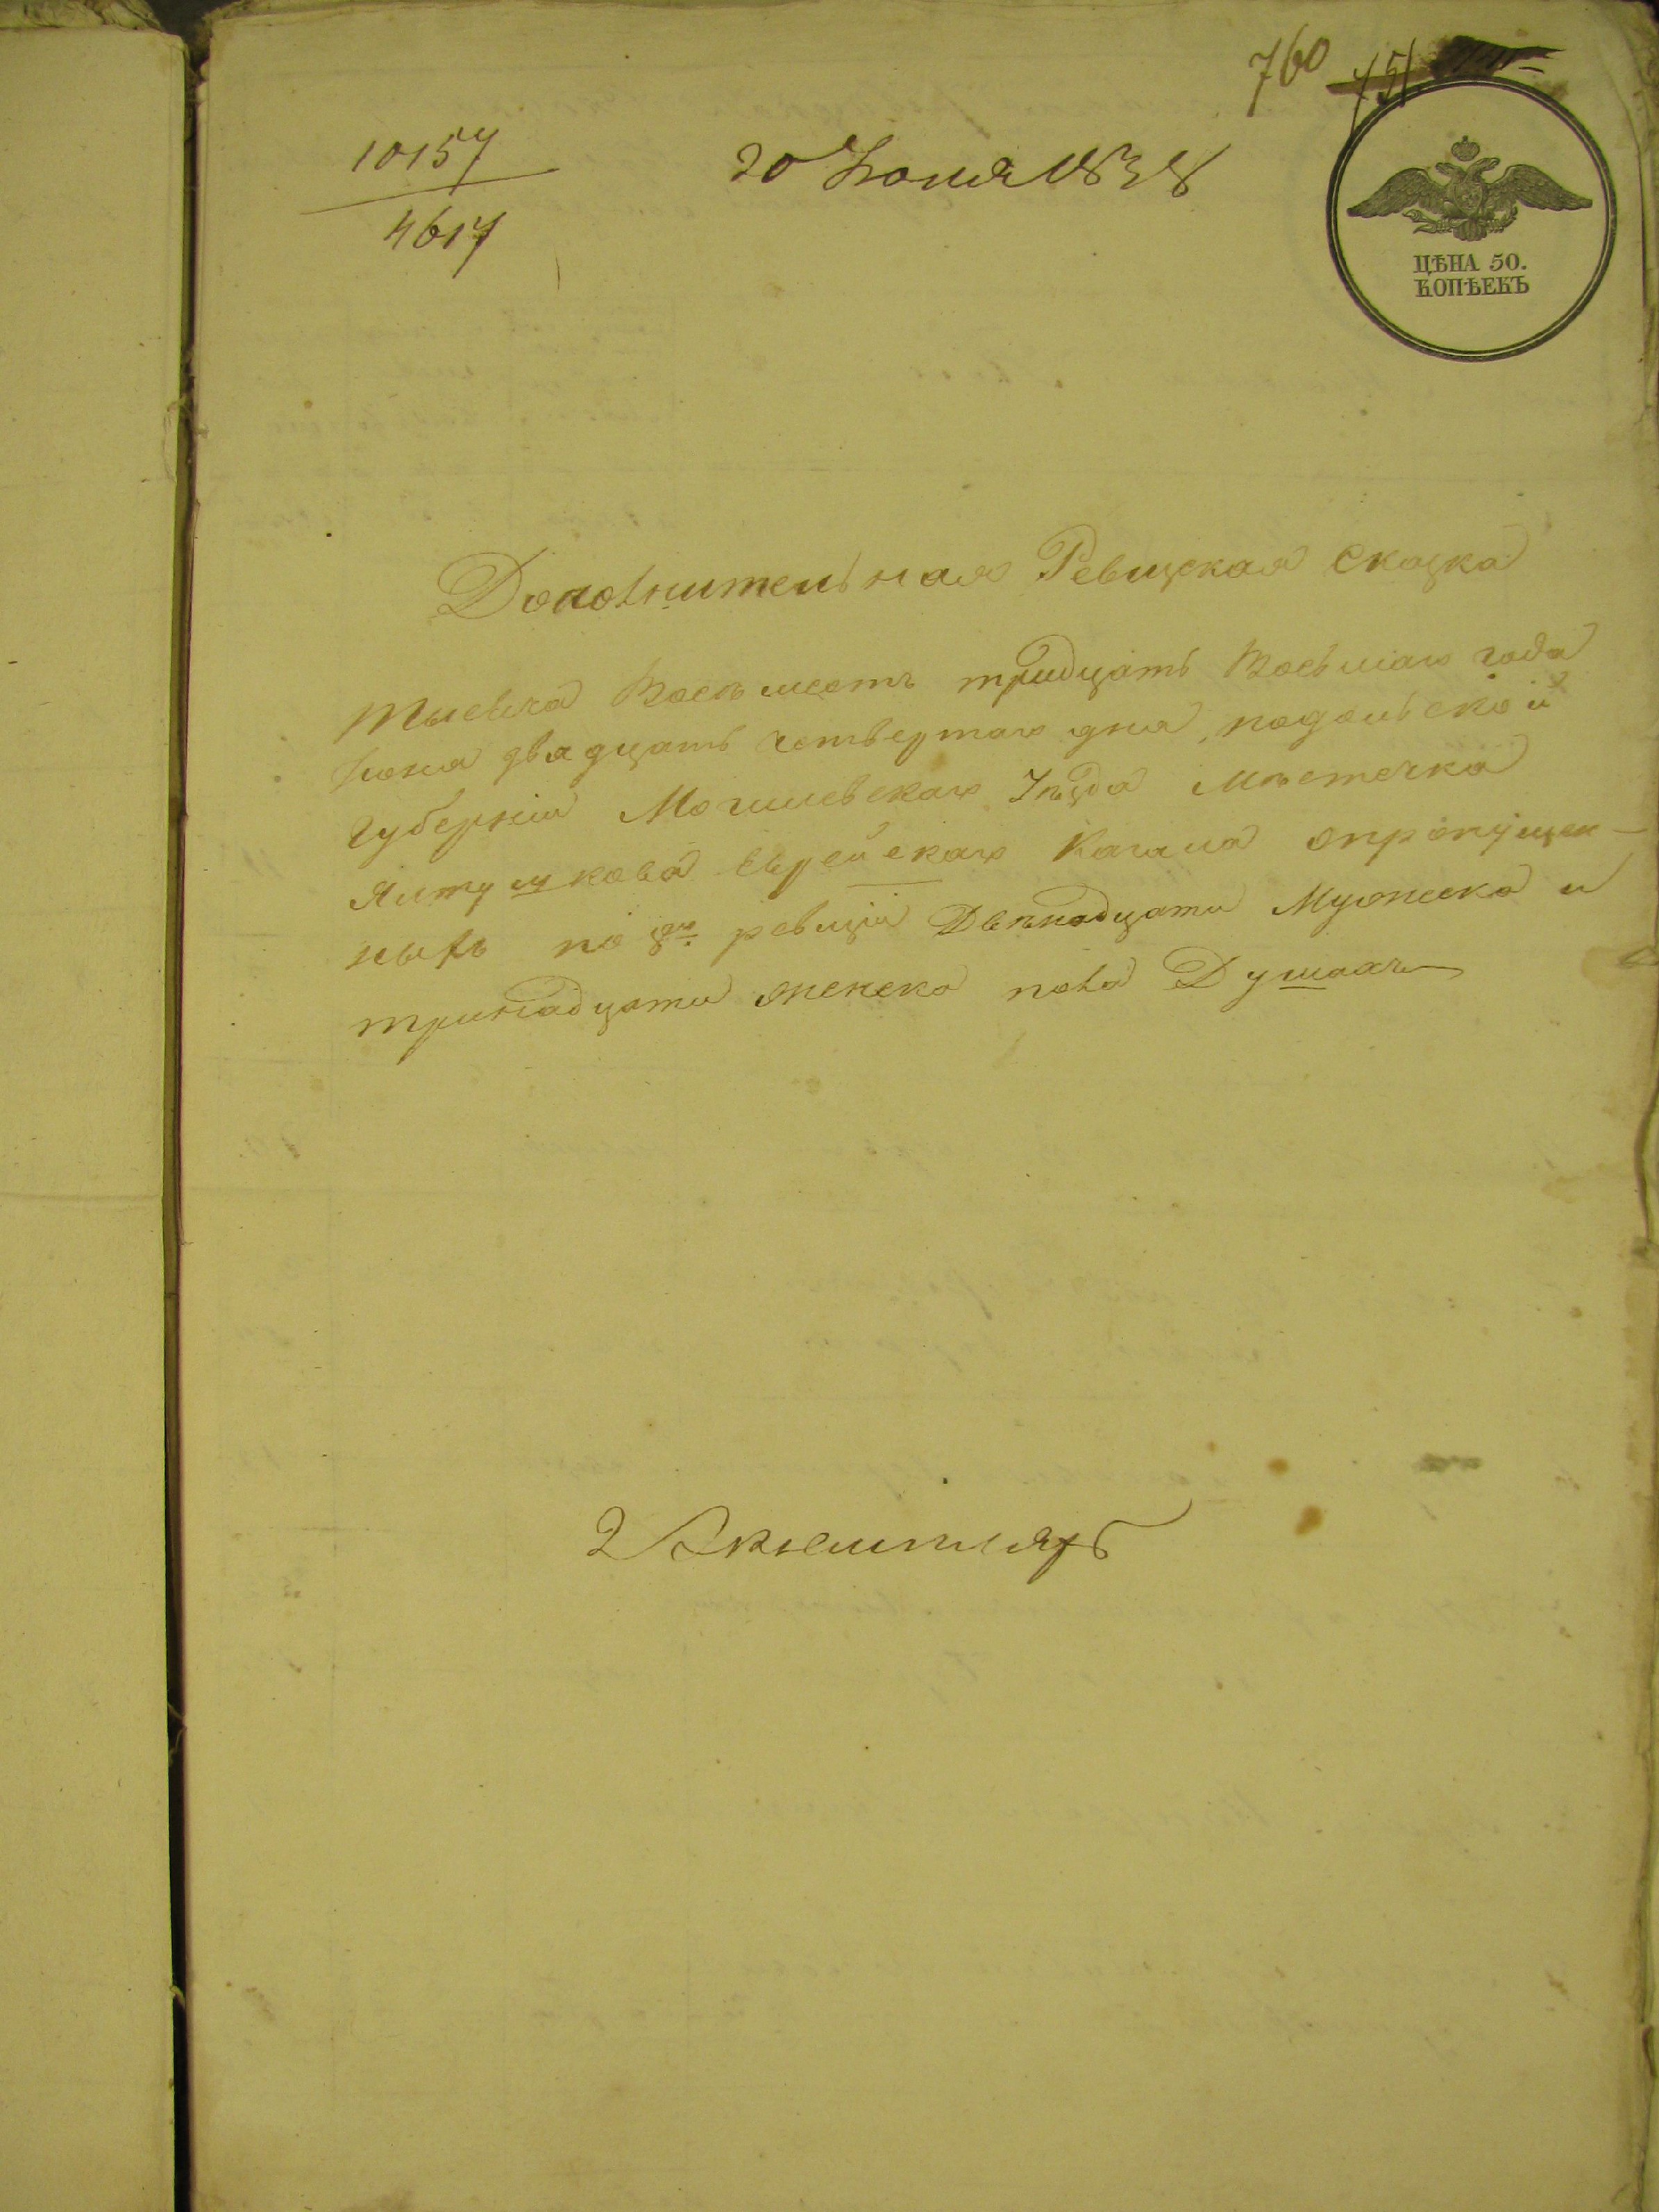 760 751
10157
4617
20 Июля 1838
ЦѢНА 50.
КОПѢЕКЪ
Дополнительная Ревизская сказка
Тысяча Восемьсотъ тридцать Восьмаго года
Июня двадцать четвертаго дня, подольской
Губерніи Могилевскаго Уѣзда мѣстечка
Ялтушкова Еврейскаго Кагала опропущен-
ныхъ по 8й ревизіи Двенадцати Мужеска и
тринадцати женска пола Душахъ
2 Экземпляръ